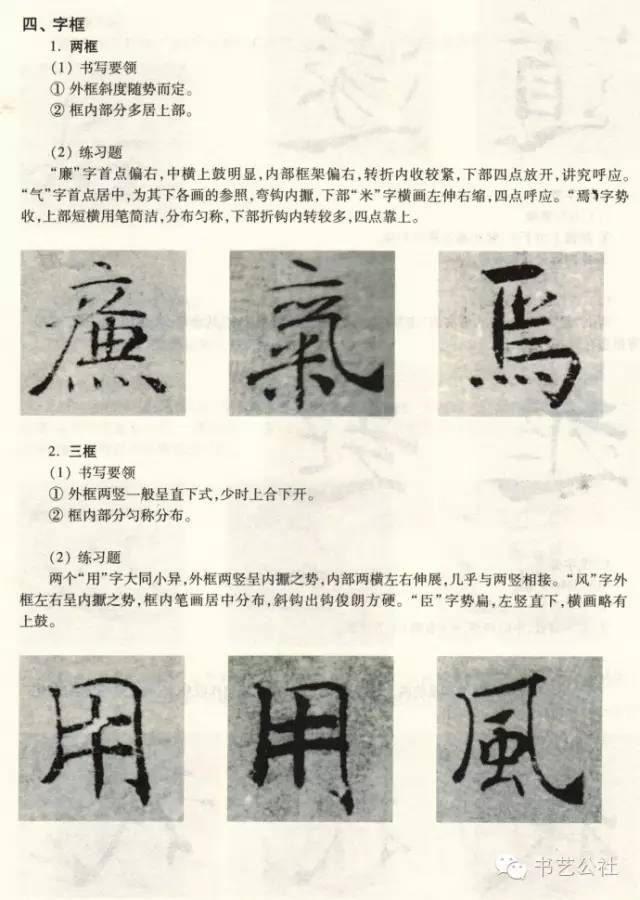 四、字框
1. 两框
(1) 书写要领
① 外框斜度随势而定。
② 框内部分多居上部。
(2) 练习题
“廉”字首点偏右,中横上鼓明显,内部框架偏右,转折内收较紧,下部四点放开,讲究呼应。
“气”字首点居中,为其下各画的参照,弯钩内擫,下部“米”字横画左伸右缩,四点呼应。“焉”字势
收,上部短横用笔简洁,分布匀称,下部折钩内转较多,四点靠上。
廉 氣 焉
2. 三框
(1) 书写要领
① 外框两竖一般呈直下式,少时上合下开。
② 框内部分匀称分布。
(2) 练习题
两个“用”字大同小异,外框两竖呈内擫之势,内部两横左右伸展,几乎与两竖相接。“风”字外
框左右呈内擫之势,框内笔画居中分布,斜钩出钩俊朗方硬。“臣”字势扁,左竖直下,横画略有
上鼓。
用 用 風
书艺公社